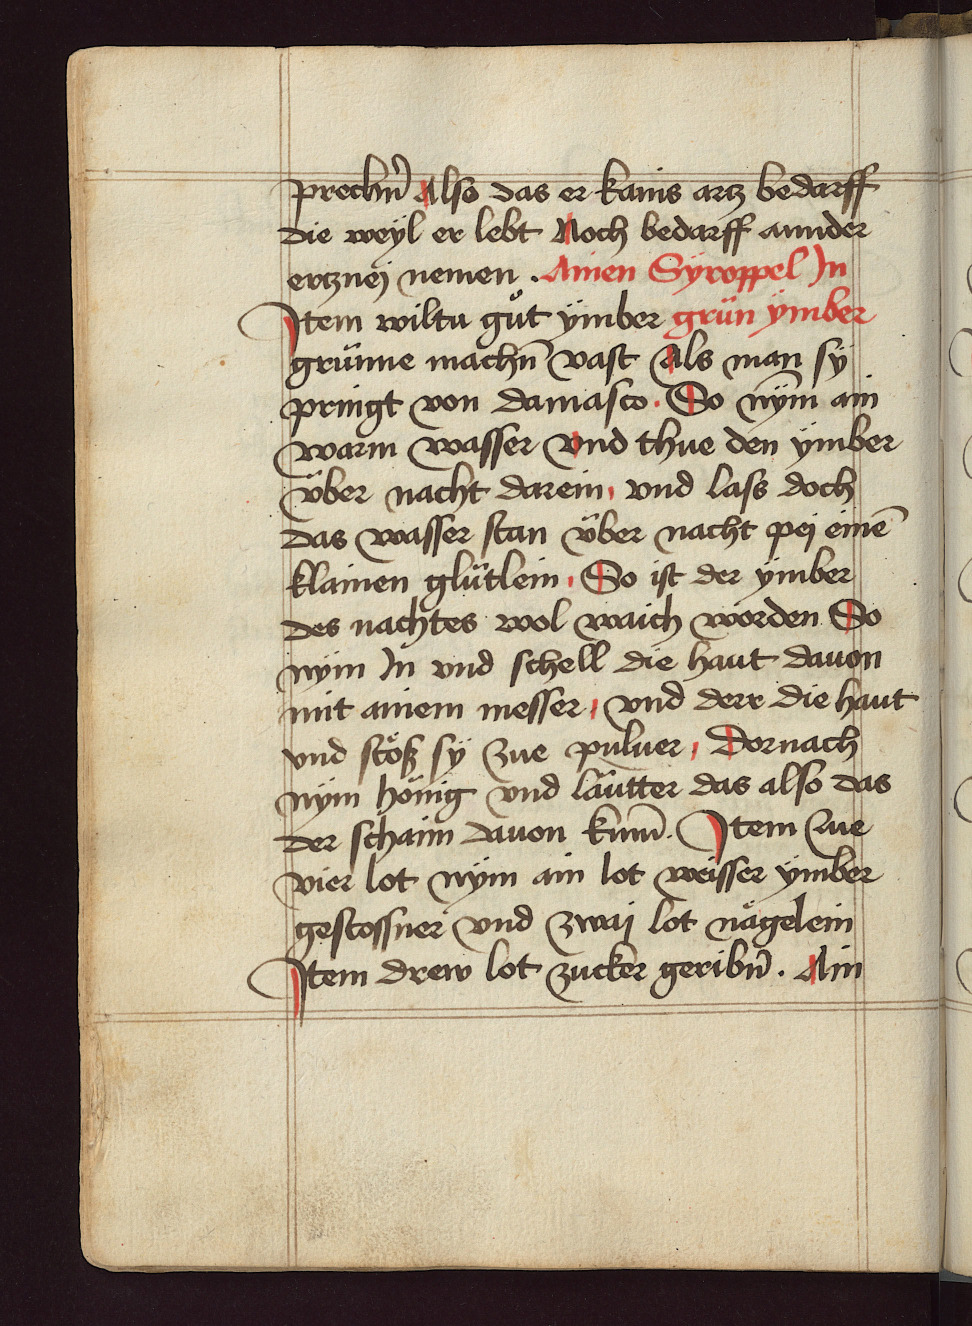 prechn̄ Also das er kains artz bedarff
die weyl er lebt Noch bedarff annder
ertzneÿ nemen . Ainen Sÿroppel In
Item wiltu gůt ÿmber grün ÿmber
grünne machn̄ vast Als man sÿ
pringt von damasco. So nÿm̄ ain
warm wasser vnd thue den ÿmber
über nacht darein, vnd lass doch
das wasser stan über nacht peÿ einē
klainen glütlein, So ist der ÿmber
des nachtes wol waich worden So
nÿm In vnd schell die haut dauon
mit ainem messer, vnd derr die haut
vnd stöß sÿ zue puluer, Dornach
nÿm hönig vnd läutter das also das
der schaim dauon kum̄. Item zue
vier lot nÿm ain lot weisser ÿmber
gestossner vnd zwaÿ lot nägelein
Item drew lot zucker geribn̄. Ain